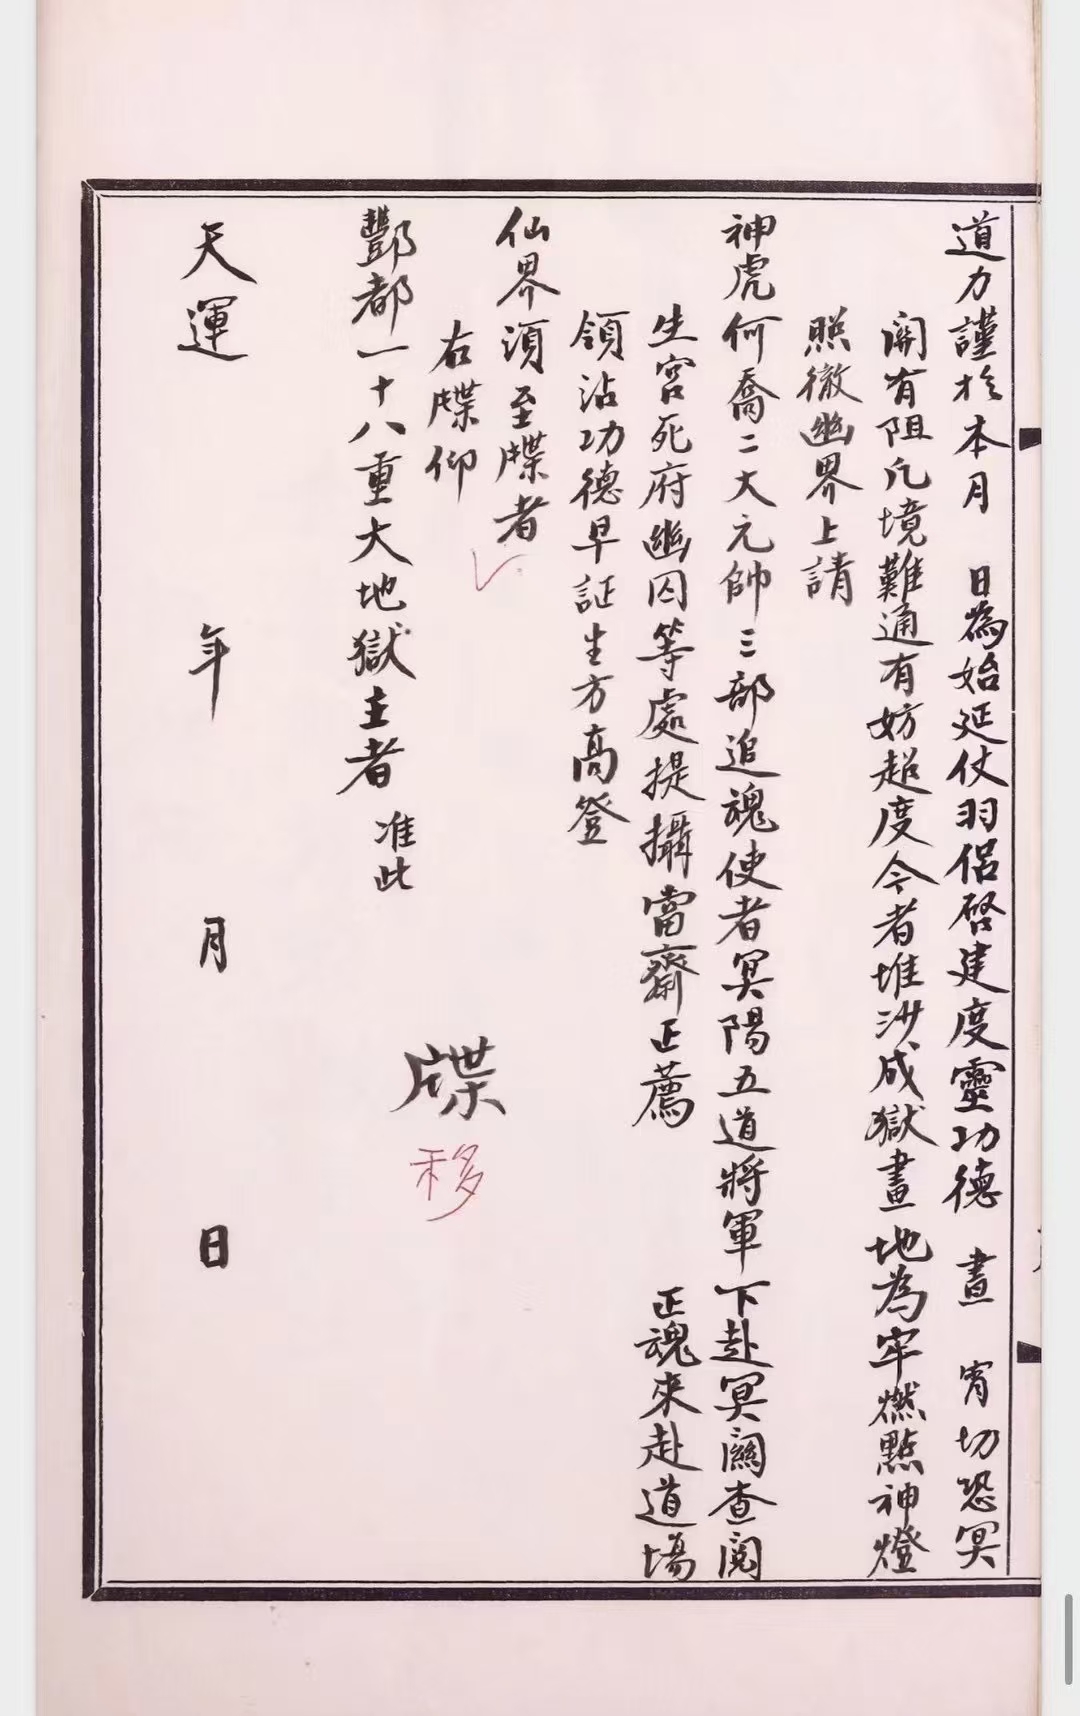 道力謹於本月　日為始延仗羽侶啓建度靈功德　晝　宵切恐冥
關有阻凡境難通有妨超度今者堆沙成獄畫地為牢燃點神燈
照徹幽界上請
神虎何喬二大元帥三部追魂使者冥陽五道將軍下赴冥闗查閱
生宮死府幽囚等處提攝當齋正薦　正魂來赴道場
領沾功德早証生方高登
仙界須至牒者
右牒仰
酆都一十八重大地獄主者 准此
牒
移
天運　年　月　日